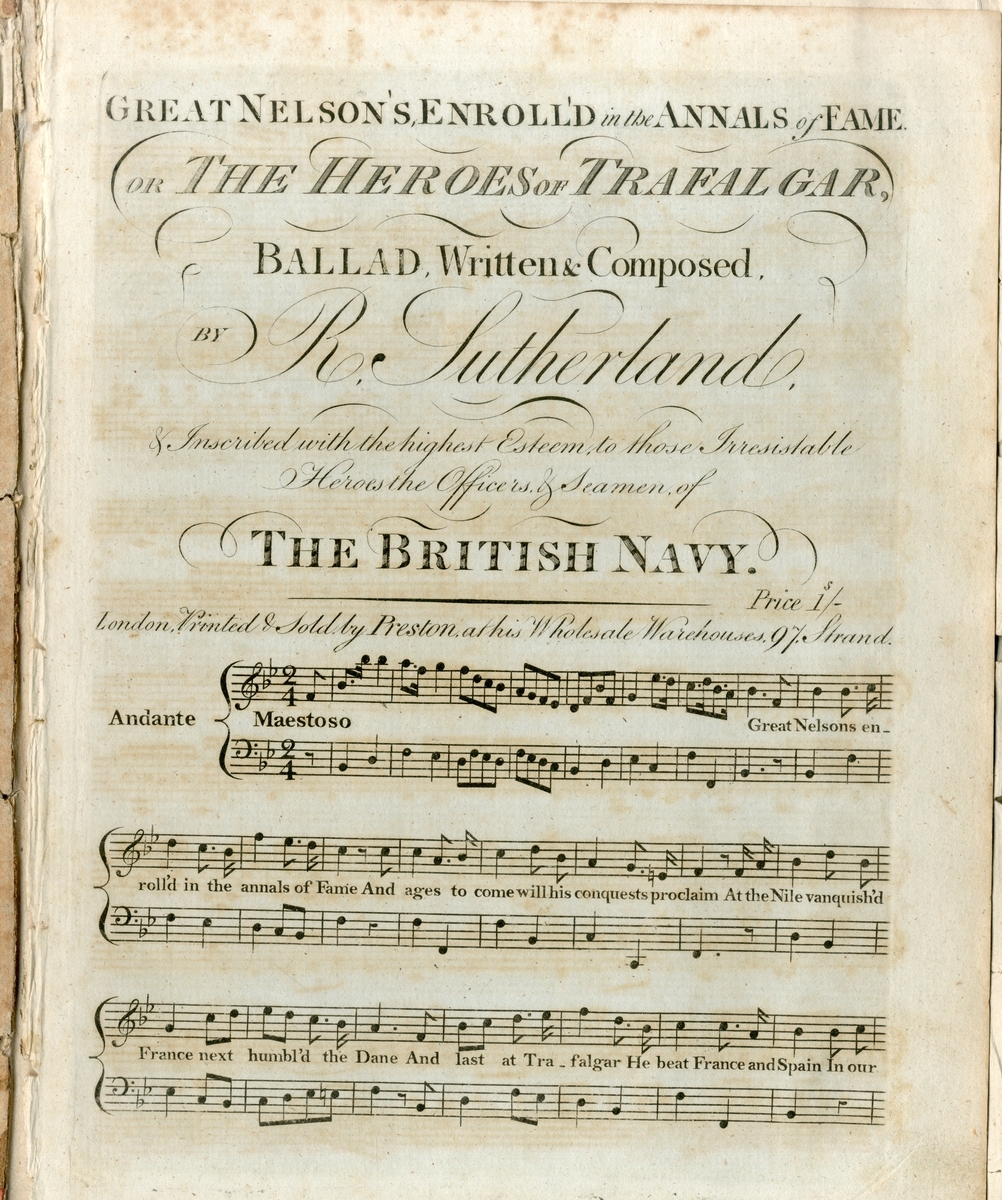 GREAT NELSON'S, ENROLL'D in the ANNALS of FAME.
OR THE HEROES OF TRAFALGAR,
BALLAD, Written & Composed,
BY R. Sutherland.
& Inscribed with the highest Esteem, to those Irresistable
Heroes the Officers, & Seamen, of
THE BRITISH NAVY.
Price 1s/-
London, Printed & Sold, by Preston, at his Wholesale Warehouses, 97, Strand.
Andante Maestoso
2/4
Great Nelsons en-
2/4
roll'd in the annals of Fame And ages to come will his conquests proclaim At the Nile vanquish'd
France next humbl'd the Dane And last at Tra - falgar He beat France and Spain In our